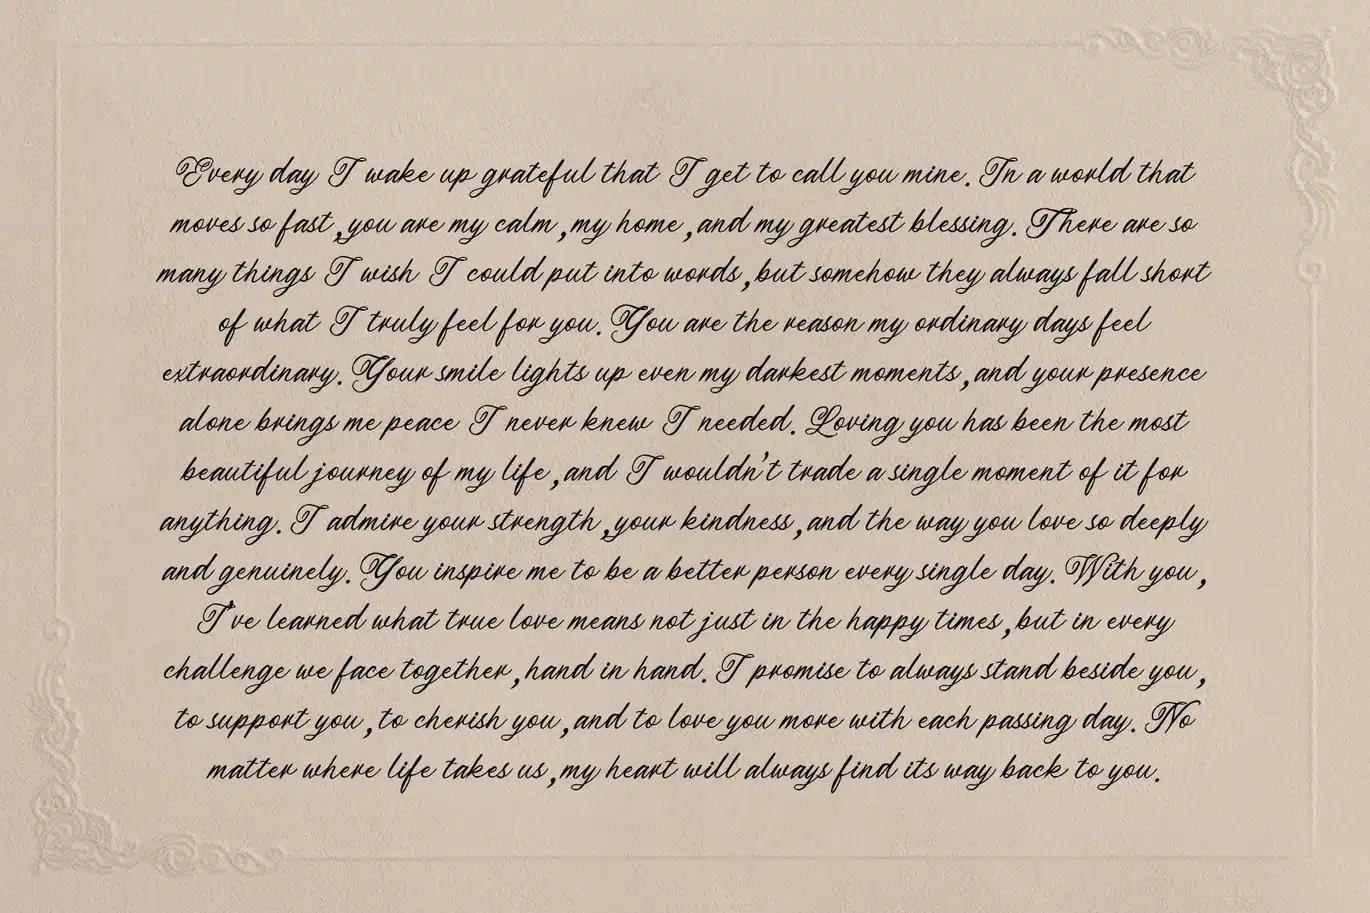 Every day I wake up grateful that I get to call you mine. In a world that
moves so fast, you are my calm, my home, and my greatest blessing. There are so
many things I wish I could put into words, but somehow they always fall short
of what I truly feel for you. You are the reason my ordinary days feel
extraordinary. Your smile lights up even my darkest moments, and your presence
alone brings me peace I never knew I needed. Loving you has been the most
beautiful journey of my life, and I wouldn't trade a single moment of it for
anything. I admire your strength, your kindness, and the way you love so deeply
and genuinely. You inspire me to be a better person every single day. With you,
I've learned what true love means not just in the happy times, but in every
challenge we face together, hand in hand. I promise to always stand beside you,
to support you, to cherish you, and to love you more with each passing day. No
matter where life takes us, my heart will always find its way back to you.